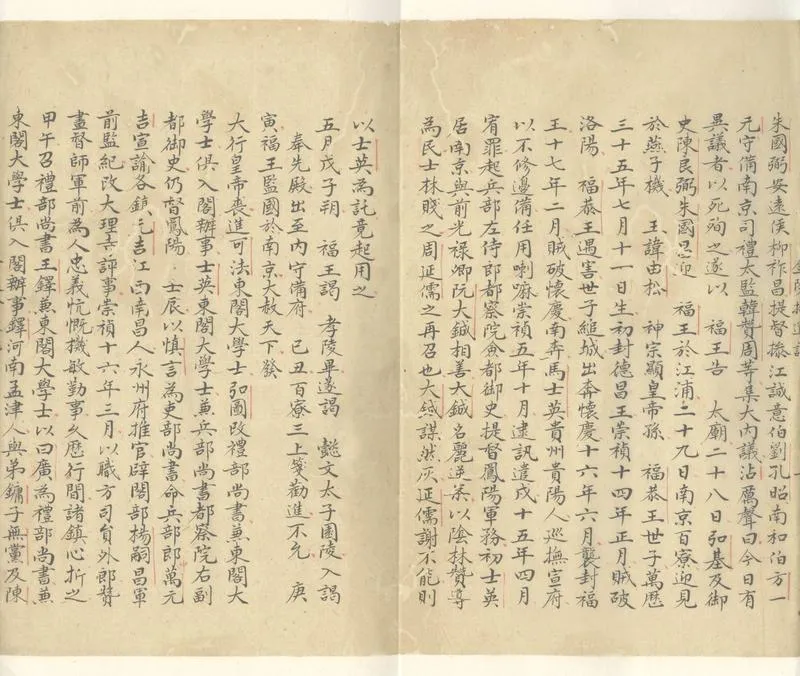 朱國弼安遠侯柳祚昌提督操江誠意伯劉孔昭南和伯方一
元守備南京司禮太監韓贊周等集大內議沾厲聲曰今日有
異議者以死殉之遂以　福王告　太廟二十八日弘基及御
史陳良弼朱國昌迎　福王於江浦二十九日南京百寮迎見
於燕子機　王諱由松　神宗顯皇帝孫　福恭王世子萬歷
三十五年七月十一日生初封德昌王崇禎十四年正月賊破
洛陽　福恭王遇害世子縋城出奔懷慶十六年六月襲封福
王十七年二月賊破懷慶南奔馬士英貴州貴陽人巡撫宣府
以不修邊備任用喇嘛崇禎五年十月逮訊遣戍十五年四月
宥罪起兵部左侍郎都察院僉都御史提督鳳陽軍務初士英
居南京與前光祿卿阮大鋮相善大鋮名麗逆案以陰林贊導
為民士林賤之周延儒之再召也大鋮謀然灰延儒謝不能則
以士英為託竟起用之
五月戊子朔　福王謁　孝陵畢遂謁　懿文太子園陵入謁
奉先殿出至內守備府　己丑百寮三上箋勸進不允　庚
寅福王監國於南京大赦天下發
大行皇帝喪進可法東閣大學士弘圖改禮部尚書兼東閣大
學士俱入閣辦事士英東閣大學士兼兵部尚書都察院右副
都御史仍督鳳陽　壬辰以慎言為吏部尚書命兵部郎萬元
吉宣諭各鎮元吉江西南昌人永州府推官辟閣部楊嗣昌軍
前監紀改大理寺評事崇禎十六年三月以職方司員外郎贊
畫督師軍前為人忠義忼慨機敏勤事久歷行間諸鎮心折之
甲午召禮部尚書王鐸兼東閣大學士以曰廣為禮部尚書兼
東閣大學士俱入閣辦事鐸河南孟津人與弟鏞子無黨及陳